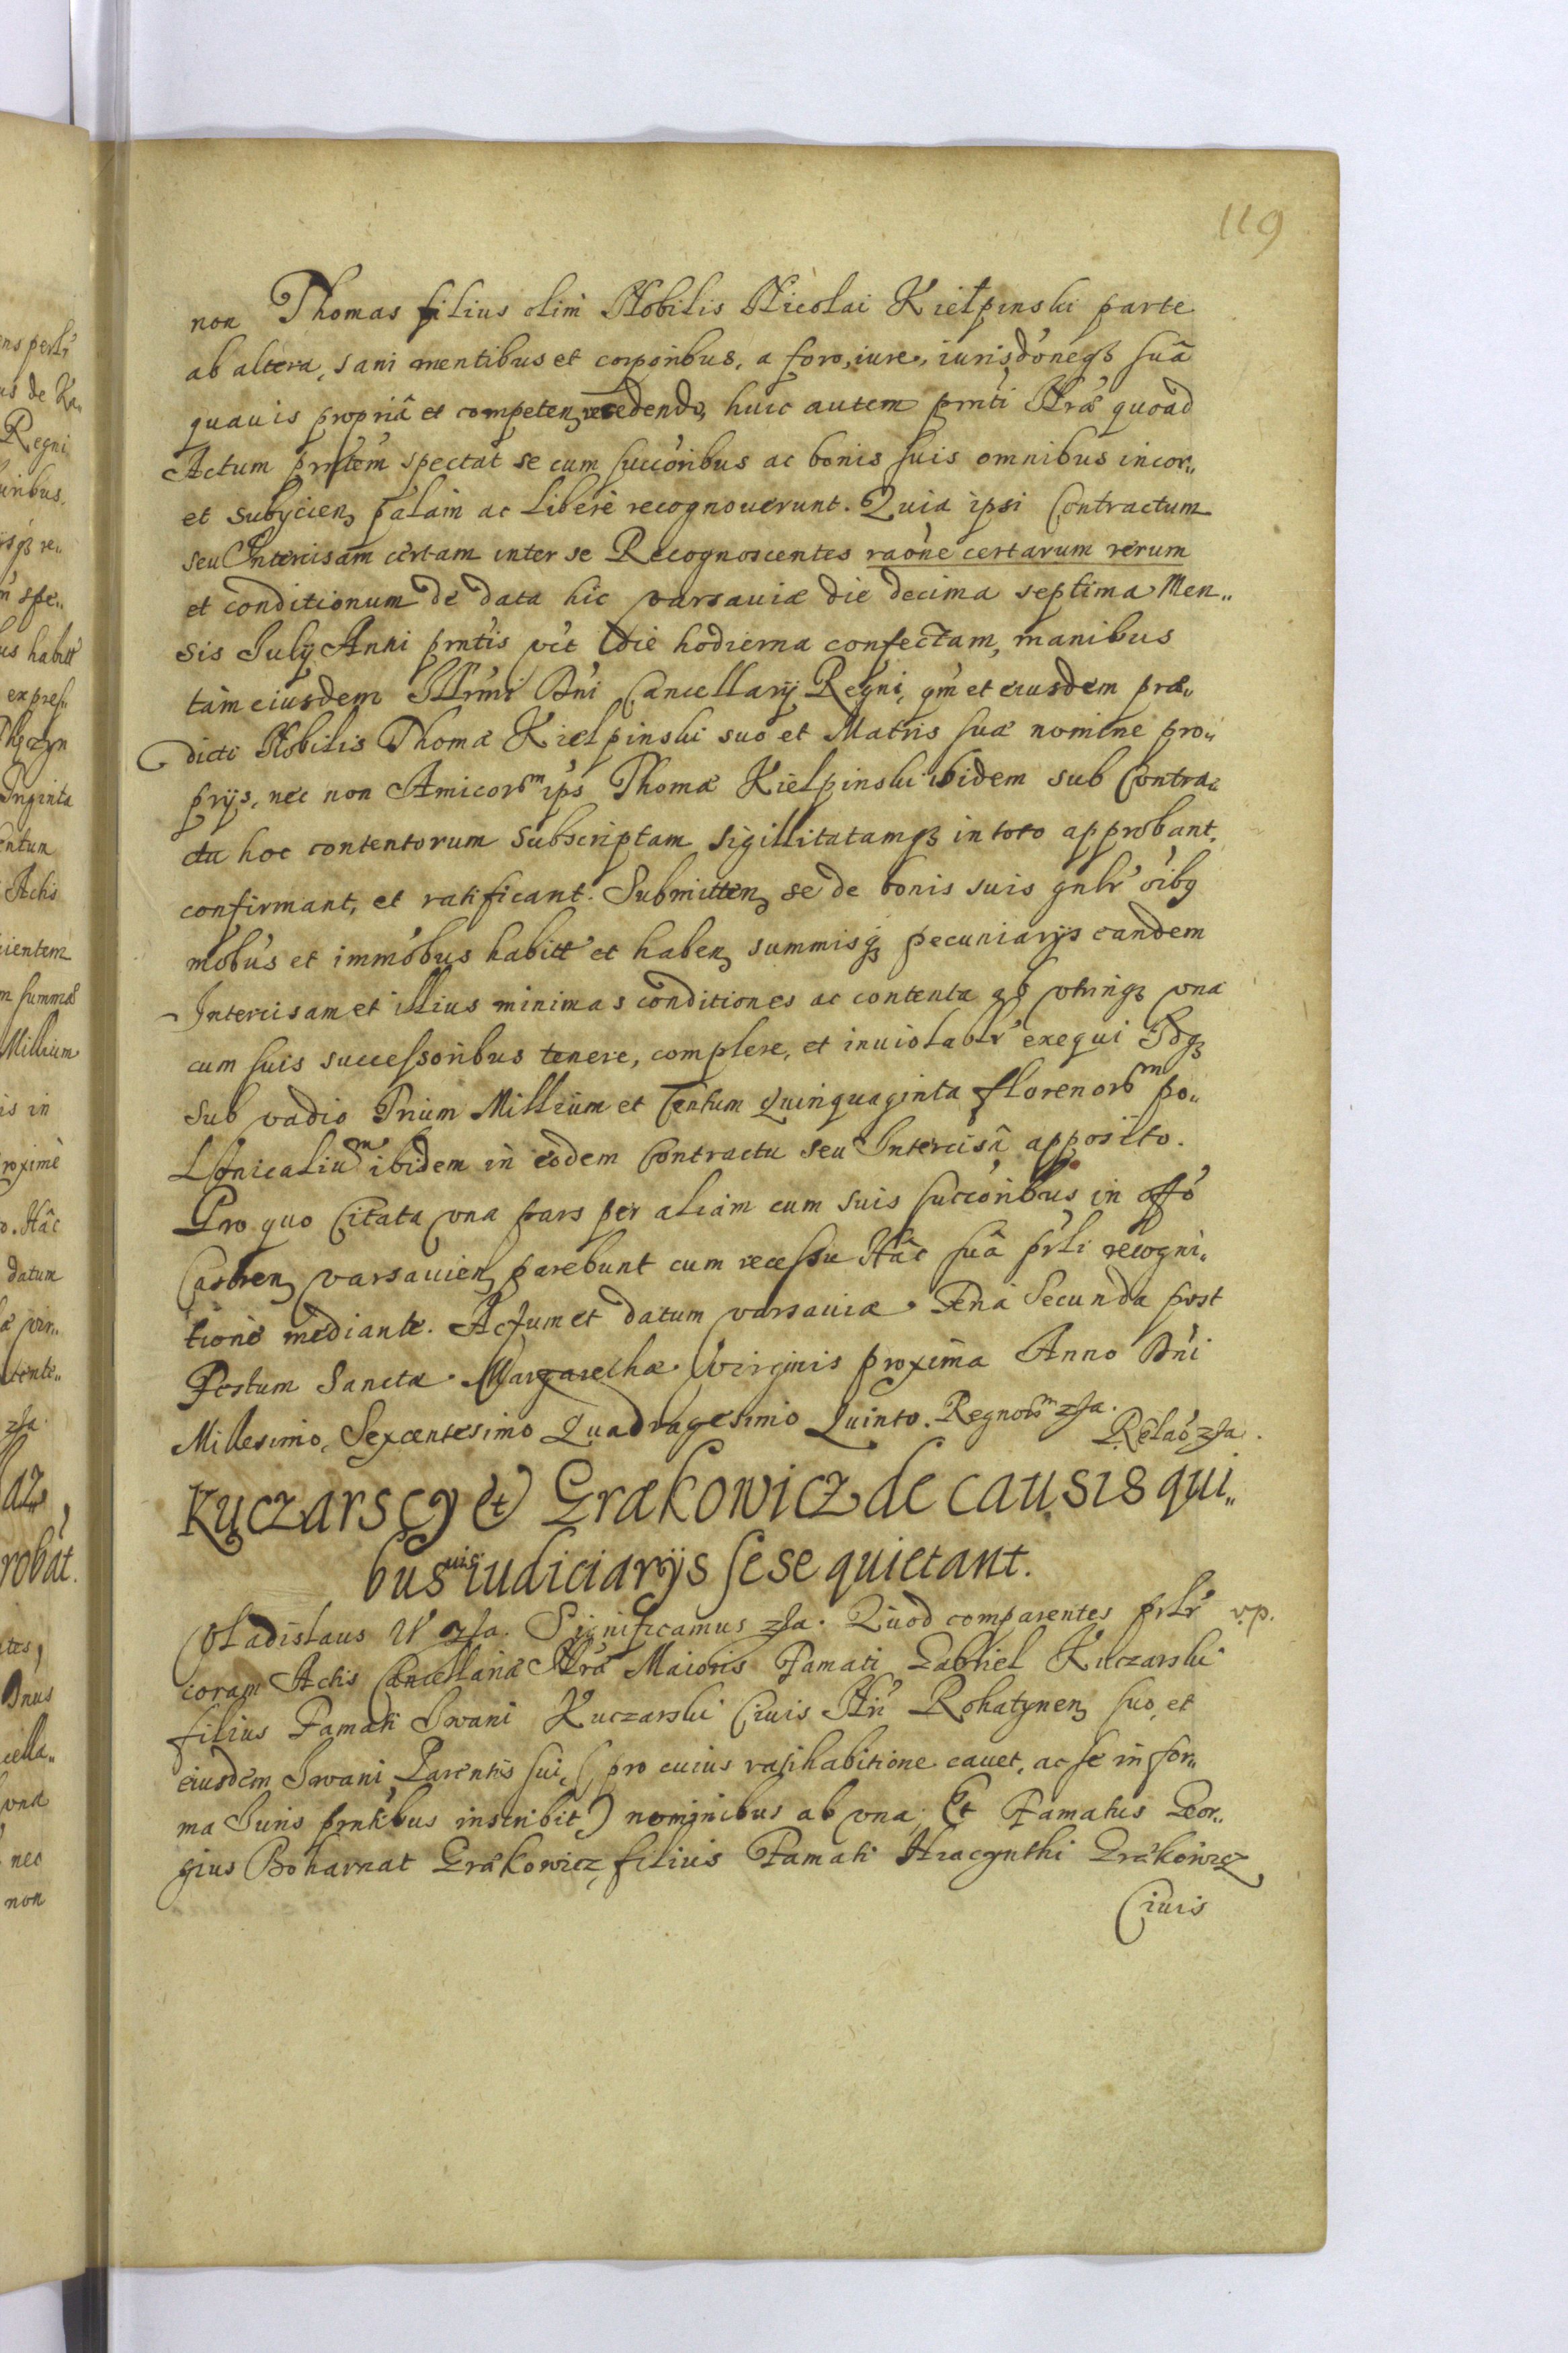 119
non Thomas filius olim Nobilis Nicolai Kiełpinski parte
ab altera, sani mentibus et corporibus, a foro, iure, iurisd'oneqz suâ
quauis propriâ et competen recedendo, huic autem prnti Nrae quoad
Actum prntem spectat se cum succoribus ac bonis suis omnibus incor„
et subycien palam ac libere recognouerunt. Quia ipsi Contractum
seu Intercisam certam inter se Recognoscentes raone certarum rerum
et conditionum de data hic varsauiæ die decima septima Men„
sis July Anni prntis vti die hodierna confectam, manibus
tàm eiusdem Illrmi Dni Cancellarij Regni, qm et eiusdem præ„
dicti Nobilis Thomæ Kielpinski suo et Matris suæ nomine pro„
prijs, nec non Amicorm ips Thomæ Kielpinski ibidem sub Contra„
ctu hoc contentorum subscriptam sigillitatamqz in toto approbant,
confirmant, et ratificant. Submitten se de bonis suis gnlr oibq
mobus et immobus habitt et haben summisqz pecuniarijs eandem
Intercisam et illius minimas conditiones ac contenta qs vtrinqz vna
cum suis successoribus tenere, complere, et inuiolablr exequi Idqz
sub vadio Trium Millium et Centum Quinquaginta florenorm po„
lonicalium ibidem in eodem Contractu seu Intercisâ apposito.
Pro quo Citata vna pars per aliam cum suis succoribus in offo
Castren varsauien parebunt cum recessu Hâc suâ prli recogni„
tione mediante. Actum et datum varsauiæ. Feria Secunda post
Festum Sanctæ Margarethæ Virginis proxima Anno Dni
Millesimo, Sexcentesimo Quadragesimo Quinto. Regnorm zta.
Relao zta.
Kuczarscy et Grækowicz de causis qui„
busuis iudiciarijs sese quietant.
Vladislaus IV zta. Significamus zta. Quod comparentes prlr v.p.
coram Actis Cancellariæ Nræ Maioris Famati Gabriel Kuczarski
filius Famati Iwani Kuczarski Ciuis Nri Rohatynen suo, et
eiusdem Iwani Parentis sui, (pro cuius ratihabitione cauet, ac se in for„
ma Iuris prntibus inscribit) nominibus ab vna; Et Famatus Geor„
gius Boharnat Grækowicz, filius Famati Hiacynthi Grækowicz
Ciuis